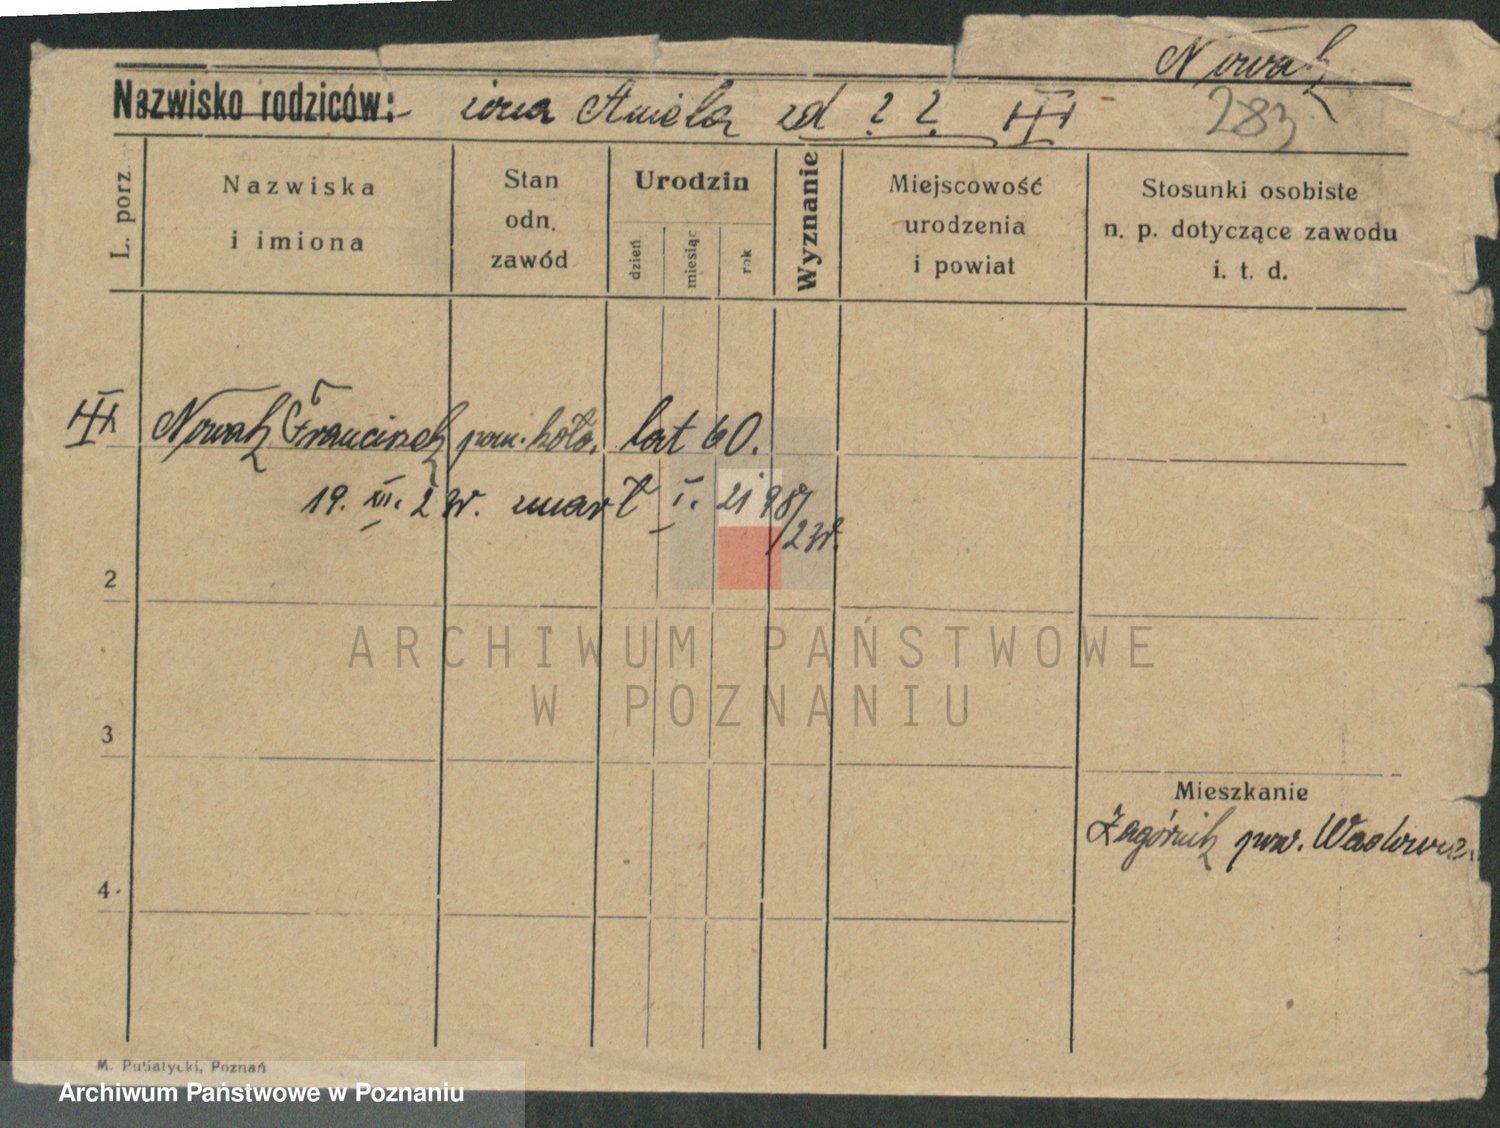 Nowak
Nazwisko rodziców: żona Aniela zd ? ? III 283
L. porz.
Nazwiska
i imiona
Stan
odn.
zawód
Urodzin
dzień
miesiąc
rok
Wyznanie
Miejscowość
urodzenia
i powiat
Stosunki osobiste
n. p. dotyczące zawodu
i. t. d.
III Nowak Franciszek pom. koło. lat 60.
19. III. 2 zw. umarł I. 21 987
/23r.
2
ARCHIWUM PAŃSTWOWE
W POZNANIU
3
Mieszkanie
Zagórnik pow. Wadowice
4.
M. Putiatycki, Poznań
Archiwum Państwowe w Poznaniu